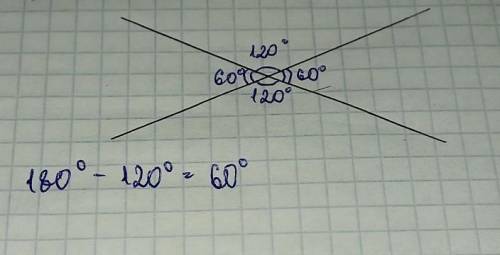 120°
60° 60°
120°
180° - 120° = 60°